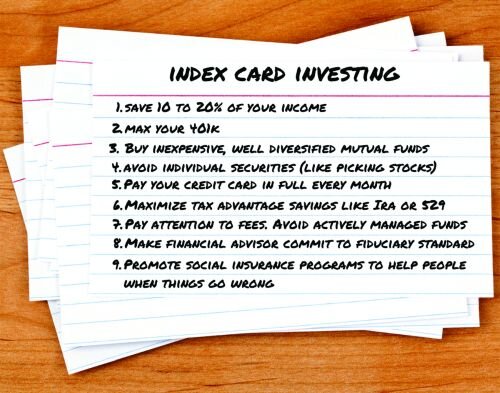 INDEX CARD INVESTING
1. SAVE 10 TO 20% OF YOUR INCOME
2. MAX YOUR 401K
3. BUY INEXPENSIVE, WELL DIVERSIFIED MUTUAL FUNDS
4. AVOID INDIVIDUAL SECURITIES (LIKE PICKING STOCKS)
5. PAY YOUR CREDIT CARD IN FULL EVERY MONTH
6. MAXIMIZE TAX ADVANTAGE SAVINGS LIKE IRA OR 529
7. PAY ATTENTION TO FEES. AVOID ACTIVELY MANAGED FUNDS
8. MAKE FINANCIAL ADVISOR COMMIT TO FIDUCIARY STANDARD
9. PROMOTE SOCIAL INSURANCE PROGRAMS TO HELP PEOPLE
WHEN THINGS GO WRONG